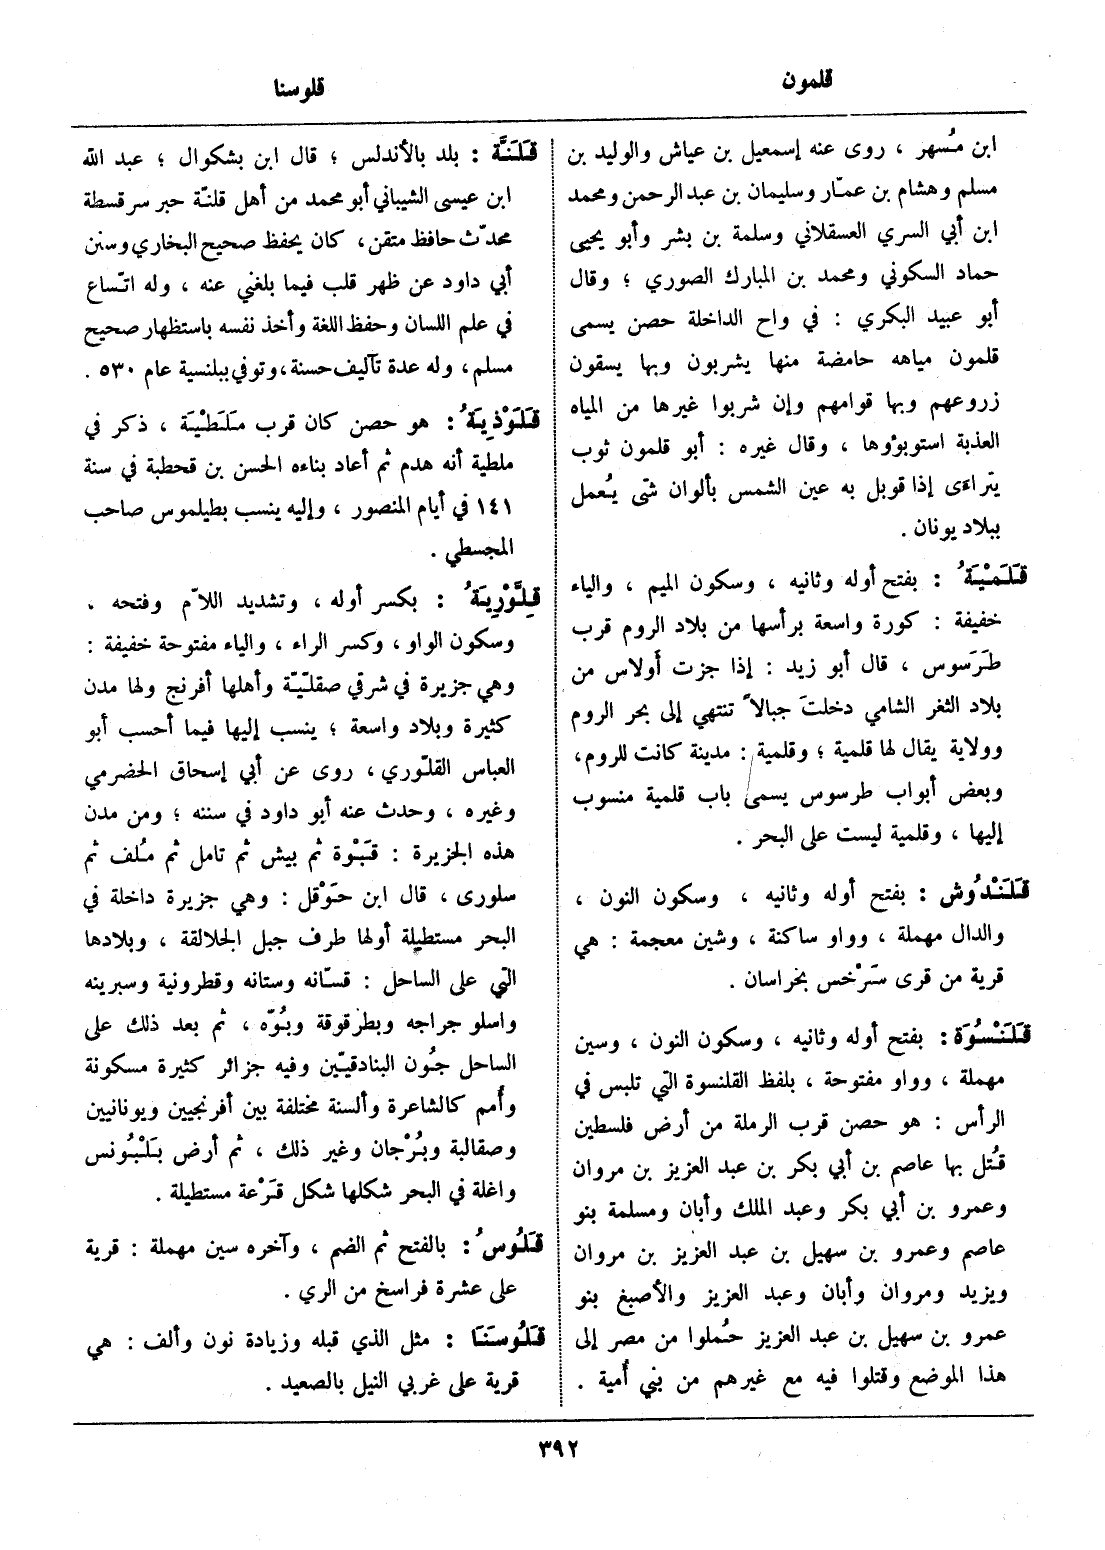 قلمون
قلوسنا
ابن مُسهر ، روى عنه إسمعيل بن عياش والوليد بن
مسلم وهشام بن عمّار وسليمان بن عبد الرحمن ومحمد
ابن أبي السري العسقلاني وسلمة بن بشر وأبو يحيى
حماد السكوني ومحمد بن المبارك الصوري ؛ وقال
أبو عبيد البكري : في واح الداخلة حصن يسمى
قلمون مياهه حامضة منها يشربون وبها يسقون
زروعهم وبها قوامهم وإن شربوا غيرها من المياه
العذبة استوبؤوها ، وقال غيره : أبو قلمون ثوب
يتراءى إذا قوبل به عين الشمس بألوان شتى يُعمل
ببلاد يونان .
قَلَمْيَةُ : بفتح أوله وثانيه ، وسكون الميم ، والياء
خفيفة : كورة واسعة برأسها من بلاد الروم قرب
طَرَسوس ، قال أبو زيد : إذا جزت أَولاس من
بلاد الثغر الشامي دخلتَ جبالاً تنتهي إلى بحر الروم
وولاية يقال لها قلمية ؛ وقلمية : مدينة كانت للروم،
وبعض أبواب طرسوس يسمى باب قلمية منسوب
إليها ، وقلمية ليست على البحر .
قَلَنْدُوش : بفتح أوله وثانيه ، وسكون النون ،
والدال مهملة ، وواو ساكنة ، وشين معجمة : هي
قرية من قرى سَرْخس بخراسان .
قَلَنْسُوَة : بفتح أوله وثانيه ، وسكون النون ، وسين
مهملة ، وواو مفتوحة ، بلفظ القلنسوة التي تلبس في
الرأس : هو حصن قرب الرملة من أرض فلسطين
قُتل بها عاصم بن أبي بكر بن عبد العزيز بن مروان
وعمرو بن أبي بكر وعبد الملك وأبان ومسلمة بنو
عاصم وعمرو بن سهيل بن عبد العزيز بن مروان
ويزيد ومروان وأبان وعبد العزيز والأصبغ بنو
عمرو بن سهيل بن عبد العزيز حُملوا من مصر إلى
هذا الموضع وقتلوا فيه مع غيرهم من بني أُمية .
قَلَنَّة : بلد بالأندلس ؛ قال ابن بشكوال ؛ عبد الله
ابن عيسى الشيباني أبو محمد من أهل قلنّة حبر سرقسطة
محدّث حافظ متقن، كان يحفظ صحيح البخاري وسنن
أبي داود عن ظهر قلب فيما بلغني عنه ، وله اتّساع
في علم اللسان وحفظ اللغة وأخذ نفسه باستظهار صحيح
مسلم، وله عدة تآليف حسنة، وتوفي ببلنسية عام ٥٣٠ .
قَلَوْذِيَةُ : هو حصن كان قرب مَلَطْيَة ، ذكر في
ملطية أنه هدم ثم أعاد بناءه الحسن بن قحطبة في سنة
١٤١ في أيام المنصور ، وإليه ينسب بطيلموس صاحب
المجسطي .
قِلَّوْرِيَةُ : بكسر أوله ، وتشديد اللاّم وفتحه ،
وسكون الواو ، وكسر الراء ، والياء مفتوحة خفيفة :
وهي جزيرة في شرقي صقلّيّة وأهلها أفرنج ولها مدن
كثيرة وبلاد واسعة ؛ ينسب إليها فيما أحسب أبو
العباس القلّوري ، روى عن أبي إسحاق الحضرمي
وغيره ، وحدث عنه أبو داود في سننه ؛ ومن مدن
هذه الجزيرة : قَبْوة ثم بيش ثم تامل ثم مُلف ثم
سلورى ، قال ابن حَوْقل : وهي جزيرة داخلة في
البحر مستطيلة أولها طرف جبل الجلالقة ، وبلادها
التي على الساحل : قسّانه وستانه وقطرونية وسبرينه
واسلو جراجه وبطرقوقة وبُوّه ، ثم بعد ذلك على
الساحل جُون البنادقيّين وفيه جزائر كثيرة مسكونة
وأُمم كالشاعرة وألسنة مختلفة بين أفرنجيين ويونانيين
وصقالبة وبُرْجان وغير ذلك ، ثم أرض بَلْبُونس
واغلة في البحر شكلها شكل قَرْعة مستطيلة .
قَلُوسُ : بالفتح ثم الضم ، وآخره سين مهملة : قرية
على عشرة فراسخ من الري .
قَلُوسَنَا : مثل الذي قبله وزيادة نون وألف : هي
قرية على غربي النيل بالصعيد .
٣٩٢